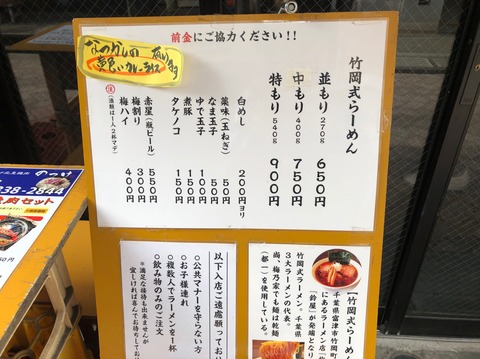 前金にご協力ください!!
なつかしの
黄色いカレーライス
竹岡式らーめん
並もり 270g 650円
中もり 400g 750円
特もり 540g 900円
白めし 200円ヨリ
薬味(玉ねぎ) 50円
なま玉子 50円
ゆで玉子 100円
煮豚 150円
タケノコ 150円
赤星(瓶ビール) 550円
梅割り 300円
梅ハイ 400円
(酒類は1人2杯マデ)
238-2844
のつけ
セット
以下入店ご遠慮願ってお
○公共マナーを守らない方
○お子様連れ
○複数人でラーメンを1杯
○飲み物のみのご注文
※満足な接待も出来ませんが
宜しければ喜んでお待ちして
「竹岡式らーめ
千葉県富津市竹岡町
にあるラーメン店
「鈴屋」が発端となり
竹岡式ラーメン。千葉県
3大ラーメンの代表。
尚、梅乃家でも麺は乾麺
(都一)を使用している。